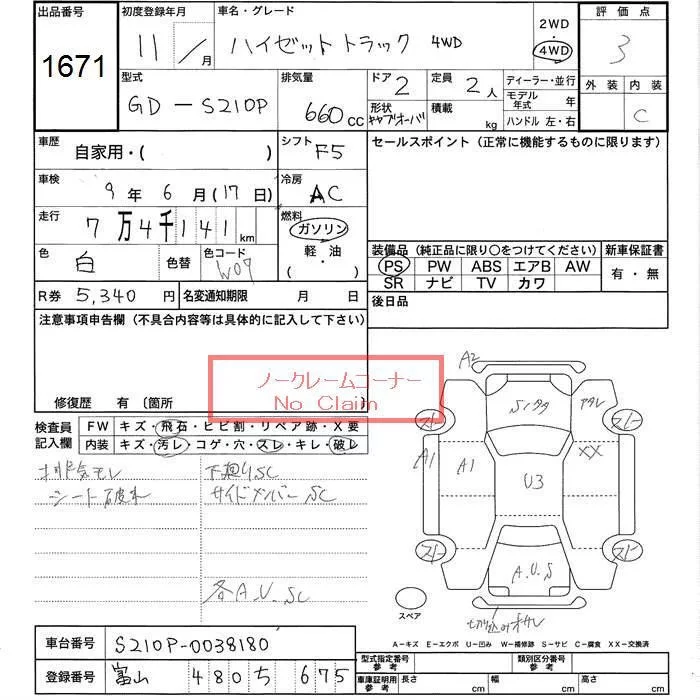 出品番号 初度登録年月 車名・グレード 2WD ・ 4WD 評価点
1671 11/月 ハイゼットトラック 4WD 3
型式 排気量 ドア 2 定員 2人 ディーラー・並行 外装 内装
GD-S210P 660cc 形状 キャブオーバ 積載 kg モデル年式 年 C
ハンドル 左・右
車歴 自家用・( ) シフト F5 セールスポイント(正常に機能するものに限ります)
車検 9年6月(17日) 冷房 AC
走行 7万4千141km 燃料 ガソリン
軽・油
( ・ )
色 白 色替 色コード W07
装備品(純正品に限り○をつけてください) 新車保証書
PS PW ABS エアB AW 有・無
SR ナビ TV カワ
R券 5,340円 名変通知期限 月 日 後日品
注意事項申告欄(不具合内容等は具体的に記入して下さい)
ノークレームコーナー
No Claim
修復歴 有(箇所 )
検査員記入欄 FW キズ・飛石・ヒビ割・リペア跡・X要
内装 キズ・汚レ・コゲ・穴・スレ・キレ・破レ
排気モレ 下廻りSC
シート破れ サイドメンバーSC
各A.U.SC
A2
アタレ
A1 A1 XX
U3
A.U.S
スペア
A-キズ E-エクボ U-凹み W-補修跡 S-サビ C-腐食 XX-交換済
車台番号 S210P-0038180
登録番号 富山 480 ち 675
型式指定番号 参考 類別区分番号 参考
車庫証明用 参考 長さ cm 幅 cm 高さ cm